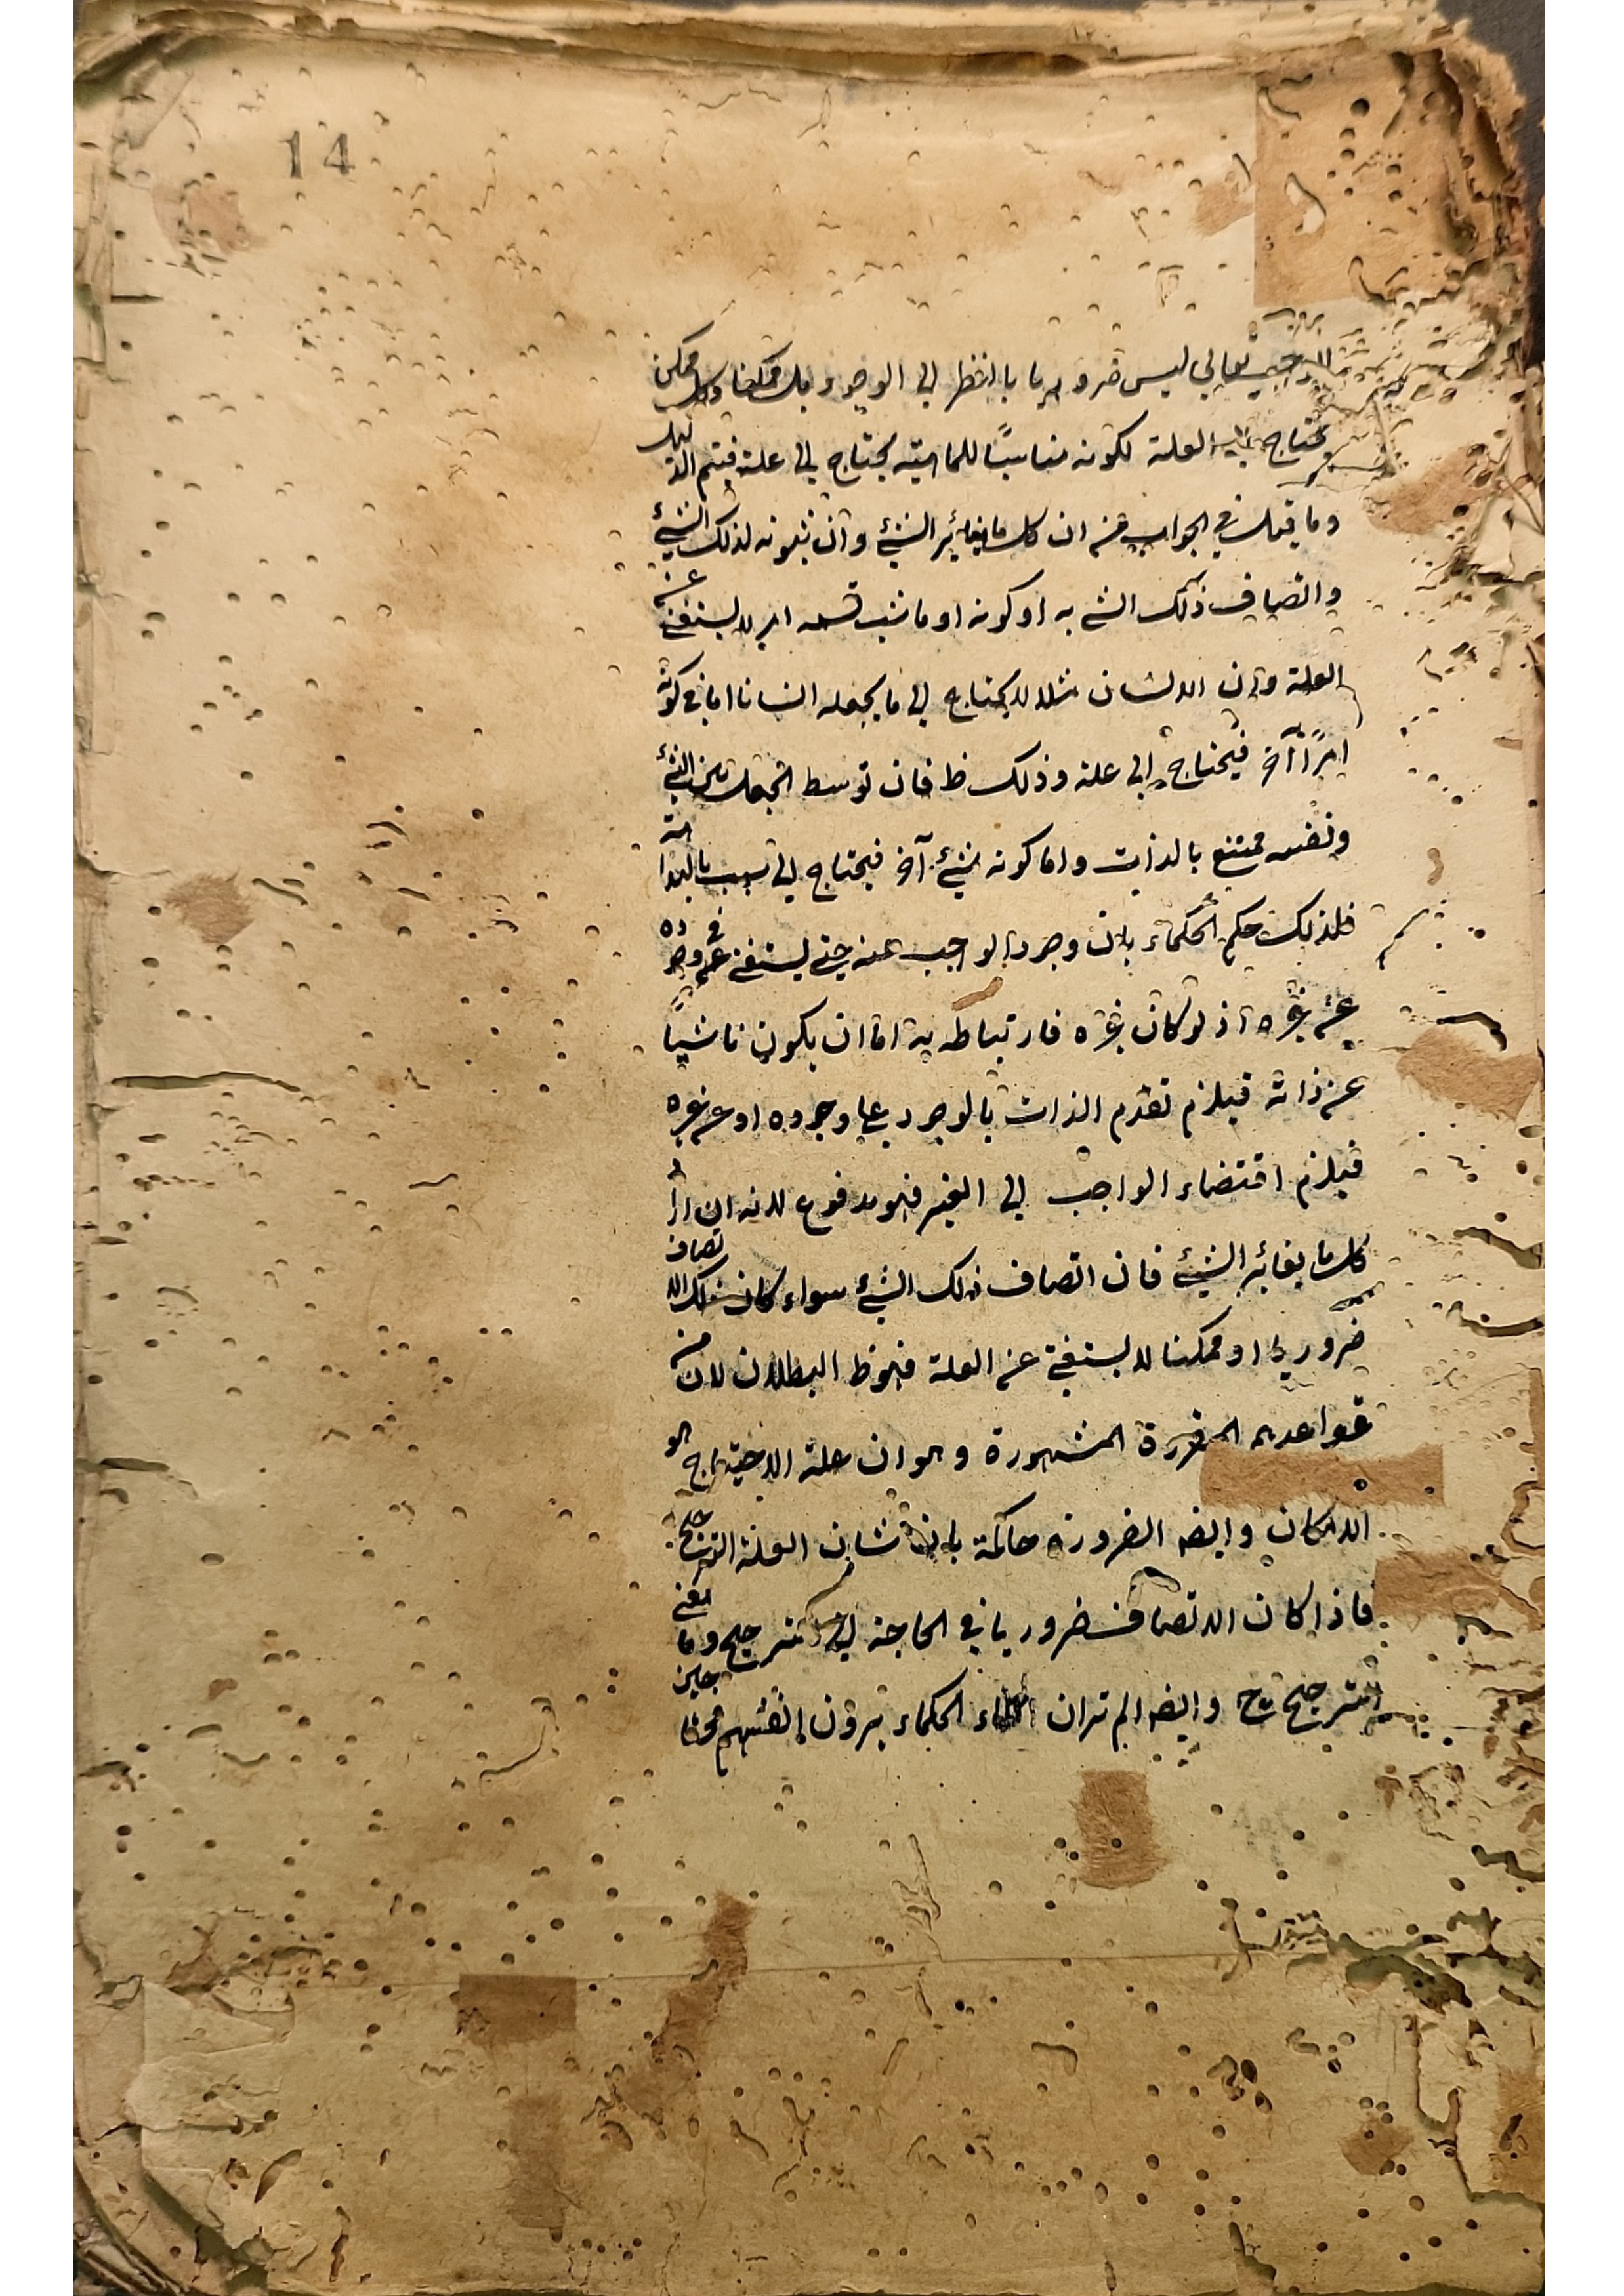 14
الواجب تعالى ليس ضروريا بالنظر الى الوجود بل ممكنا وكل ممكن
يحتاج الى العلة لكونه مناسبًا للماهية يحتاج الى علة فيتم الدليل
وما قيل في الجواب من ان كل ما يغائر الشئ وان ثبوته لذلك الشئ
واتصاف ذلك الشئ به او كونه او ما شئت قسمه امر لا يستغنى عن
العلة وان الانسان مثلا لا يحتاج الى ما يجعله انسانا اما في كونه
امرًا آخر فيحتاج الى علة وذلك ظ فان توسط الجعل بين الشئ
ونفسه ممتنع بالذات واما كونه شئ آخر فيحتاج الى سبب بالبداهة
فلذلك حكم الحكماء بان وجود الواجب عينه حتى يستغنى في وجوده
عن غيره اذ لو كان غيره فارتباطه به اما ان يكون ناشيًا
عن ذاته فيلزم تقدم الذات بالوجود على وجوده او عن غيره
فيلزم اقتضاء الواجب الى الغير فهو مدفوع لانه ان اراد
كل ما يغائر الشئ فان اتصاف ذلك الشئ سواء كان ذلك الاتصاف
ضروريا او ممكنا لا يستغنى عن العلة فهو ظ البطلان لان من
قواعدهم المقررة المشهورة وهو ان علة الاحتياج هو
الامكان وايضه الضرورة حاكمة بان شان العلة الترجيح
فاذا كان الاتصاف ضروريا في الحاجة الى الترجيح وما معنى
الترجيح ح وايضه الم تر ان الحكماء يرون انفسهم